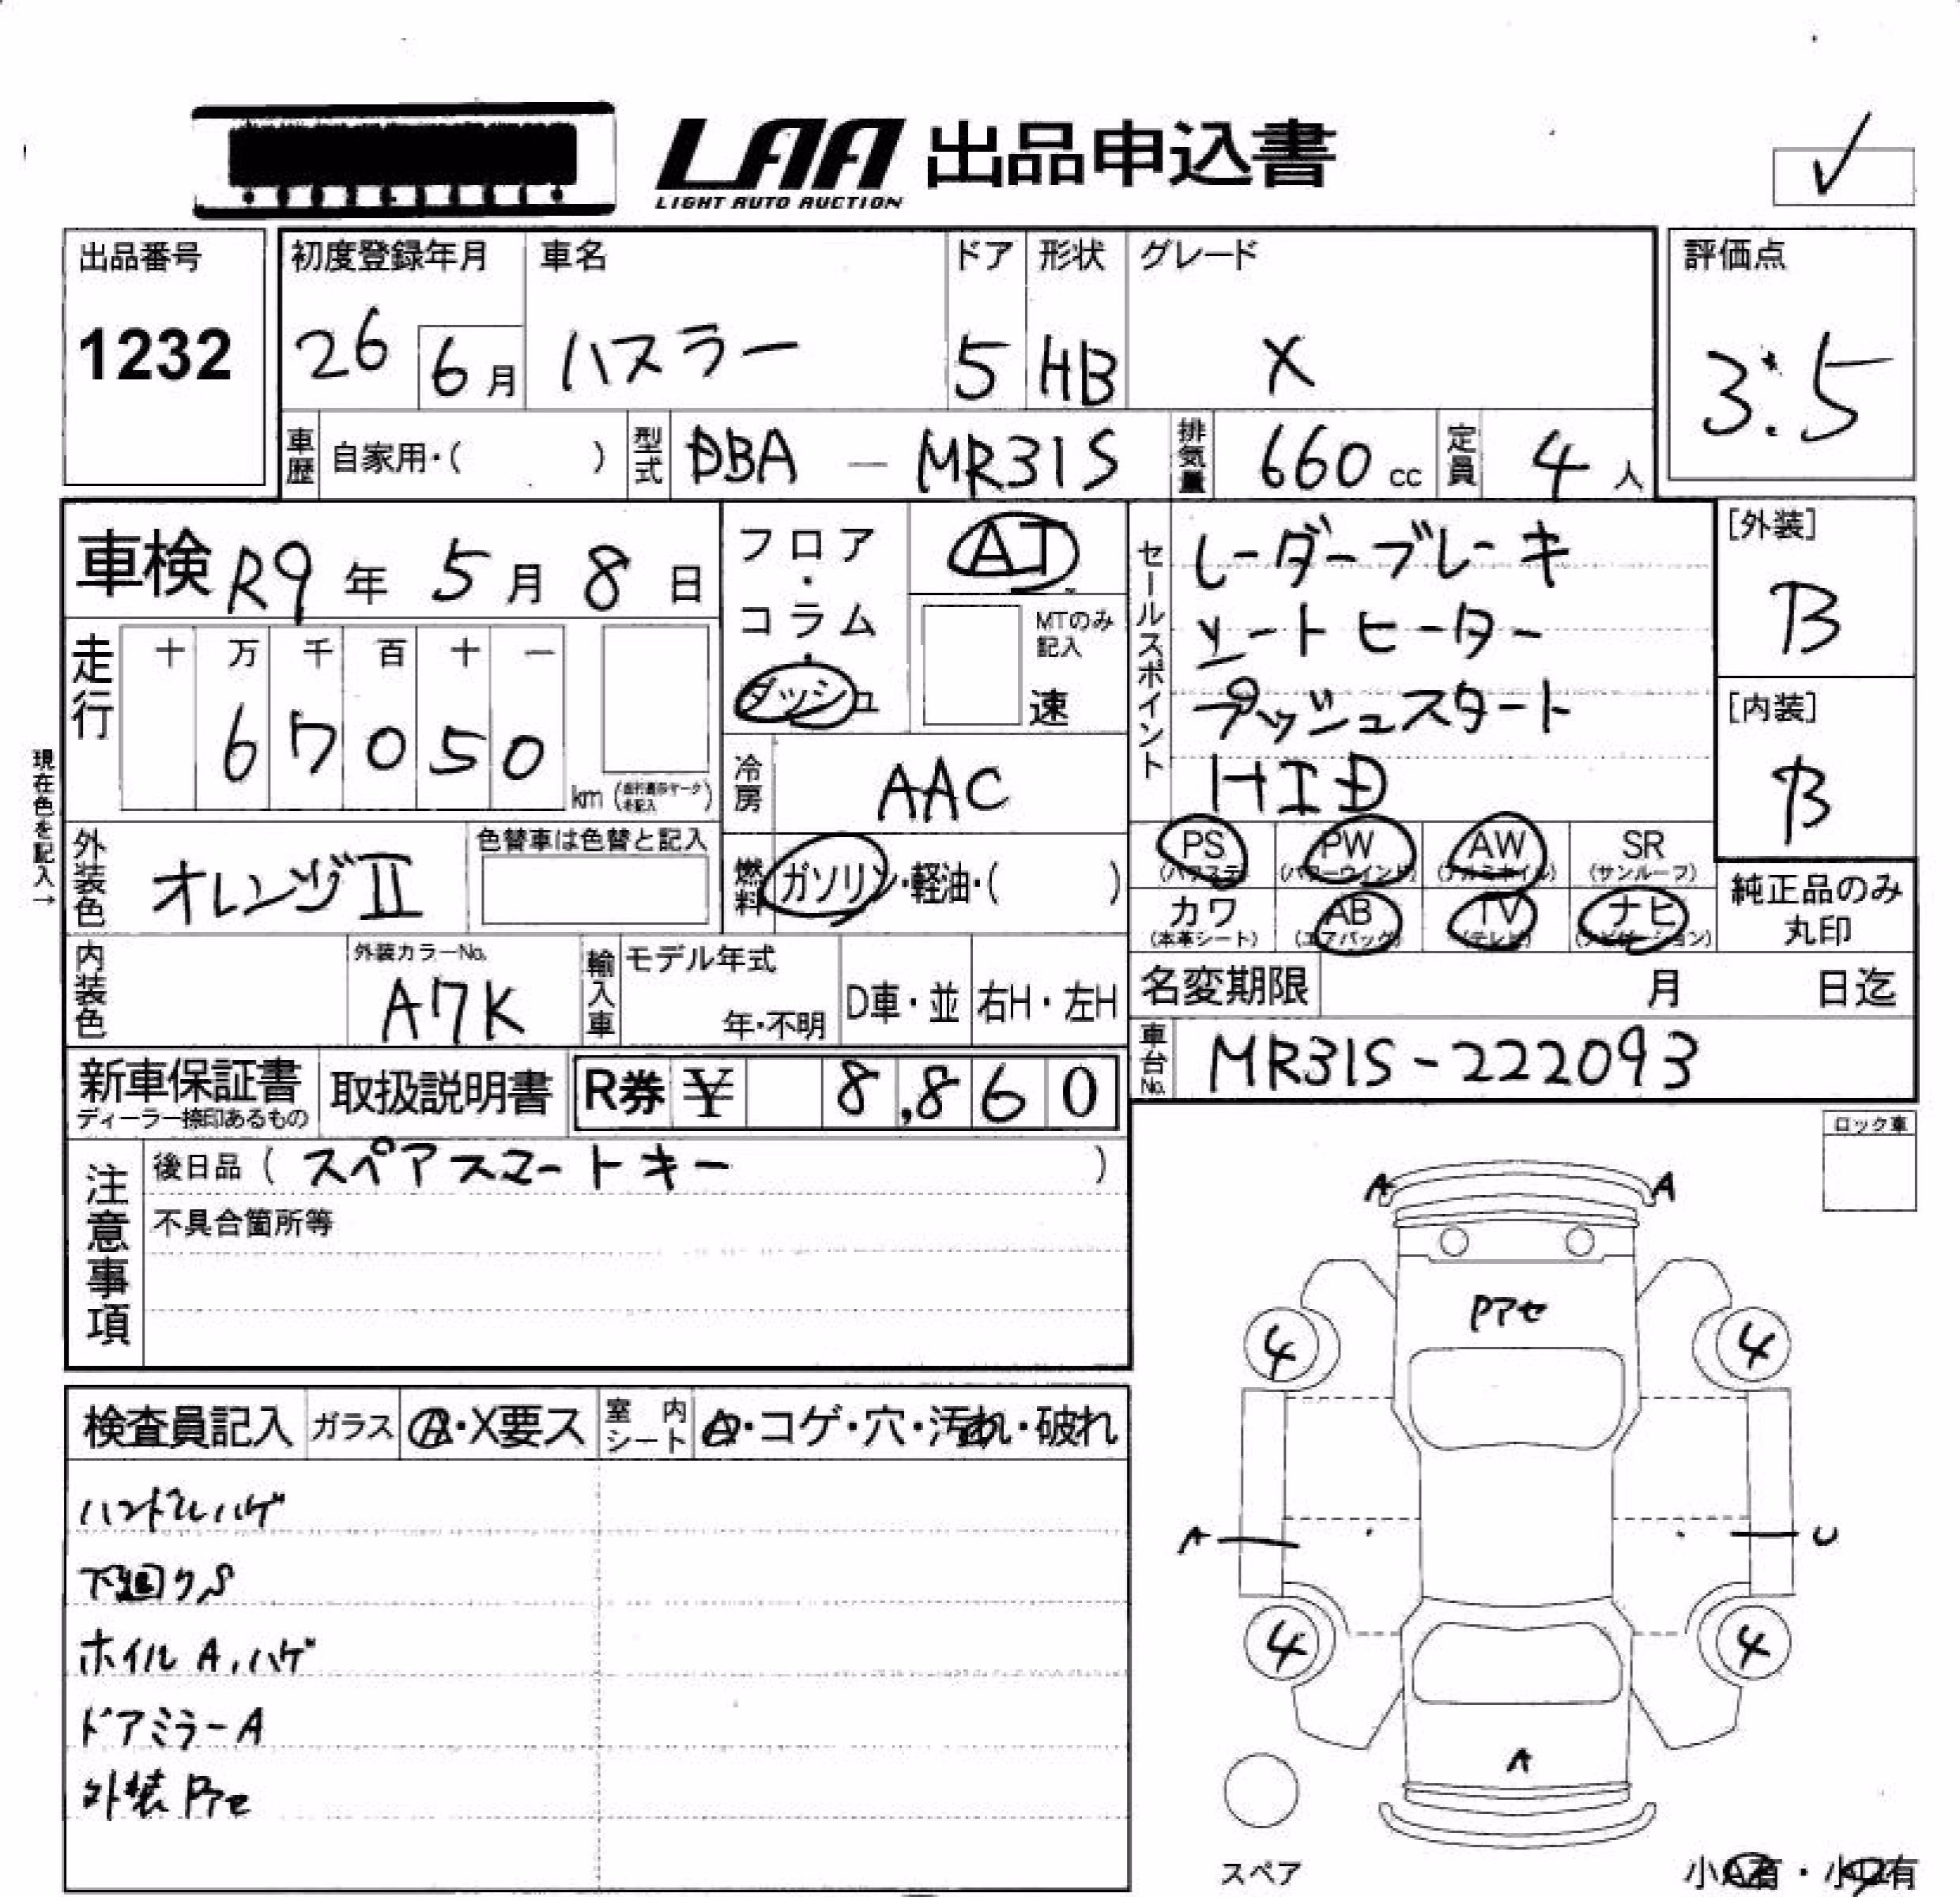 LAA 出品申込書
LIGHT AUTO AUCTION
出品番号 初度登録年月 車名 ドア 形状 グレード 評価点
1232 26 6月 ハスラー 5 HB X 3.5
車歴 自家用・( ) 型式 DBA - MR31S 排気量 660 cc 定員 4 人
車検 R9 年 5 月 8 日
フロア・コラム・ダッシュ AT
MTのみ記入
速
セールスポイント
レーダーブレーキ
シートヒーター
プッシュスタート
HID
[外装]
B
[内装]
B
走行 十 万 千 百 十 一
6 7 0 5 0 km
現在色を記入→
冷房 AAC
外装色 オレンジⅡ 色替車は色替と記入
燃料 ガソリン・軽油・( )
PS (パワステ) PW (パワーウインド) AW (アルミホイル) SR (サンルーフ)
カワ (本革シート) AB (エアバッグ) TV (テレビ) ナビ (ナビゲーション)
純正品のみ
丸印
内装色 外装カラーNo. A7K 輸入車 モデル年式 年・不明 D車・並 右H・左H
名変期限 月 日迄
車台No. MR31S-222093
新車保証書 ディーラー捺印あるもの 取扱説明書 R券 ¥ 8,860
注意事項
後日品 ( スペアスマートキー )
不具合箇所等
ロック車
A A
Pアセ
4 4
A U
4 4
A
スペア
小A有・小U有
検査員記入 ガラス A・X要ス 室内シート A・コゲ・穴・汚れ・破れ
ハンドルハゲ
下廻りS
ホイルA,ハゲ
ドアミラーA
外装Pアセ